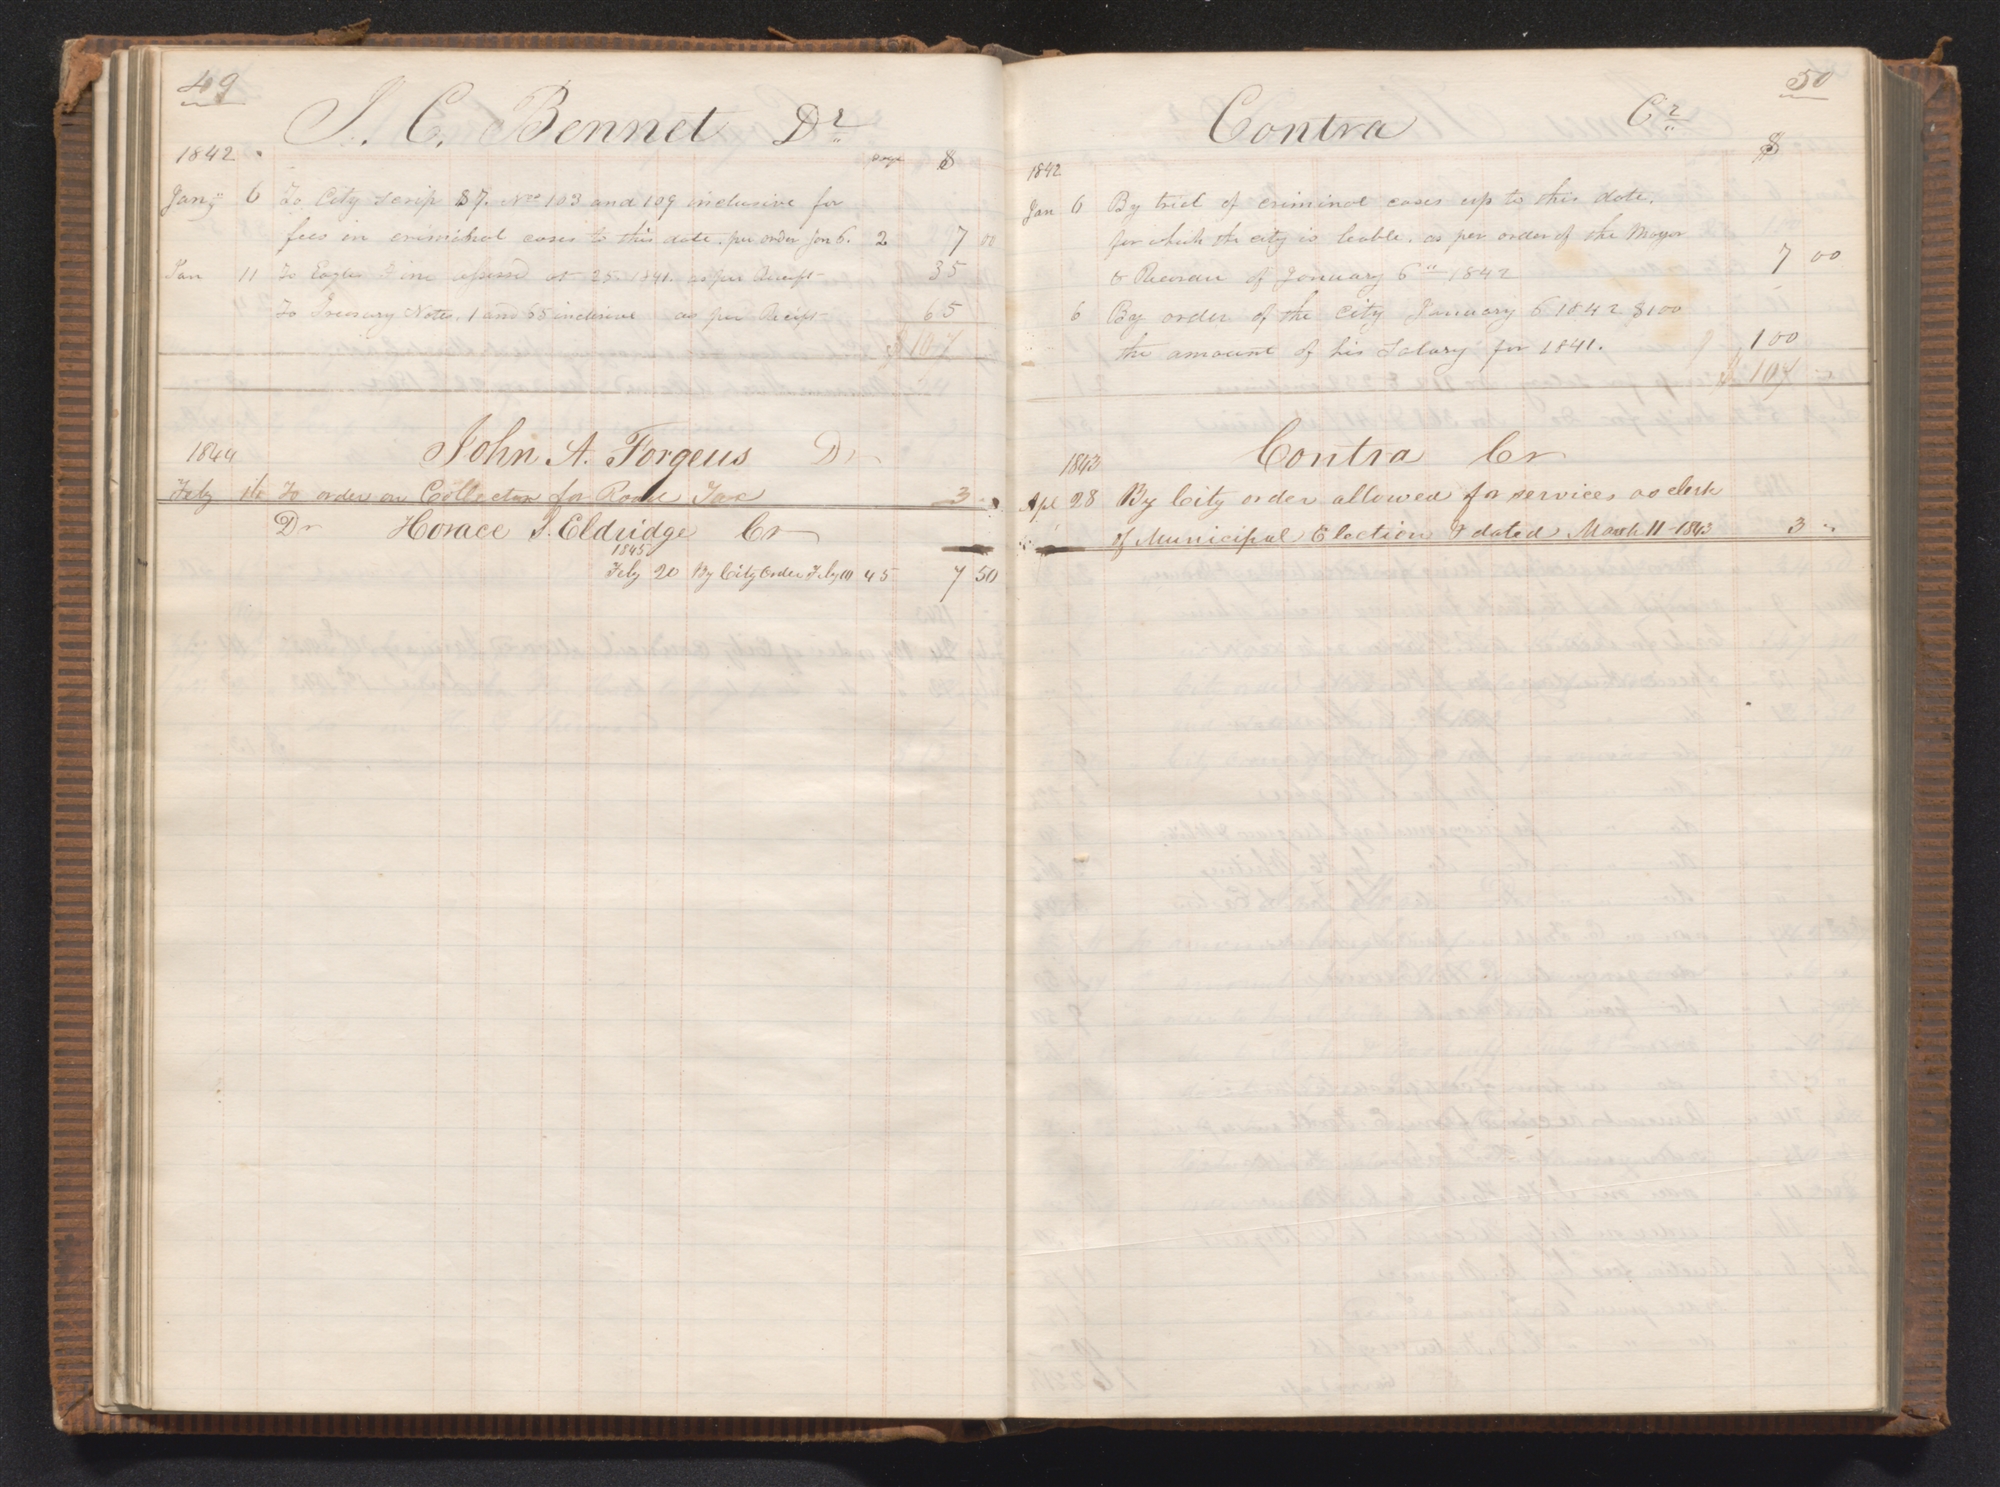 49
J. C. Bennet Dr
1842
page $
Jany 6 To City Scrip $7. Nos 103 and 109 inclusive for
fees in criminal cases to this date. per order Jan 6. 2 7 00
Jan 11 To Eagles Fine assessed at 25. 1841. as per Receipt 35
To Treasury Notes. 1 and 65 inclusive as per Receipt 65
$ 107
1844 John A. Forgeus Dr
Feby To order on Collector for Road Tax 3 "
Dr Horace S. Eldridge Cr
1845
Feby 20 By City Order Feby 10 45 7 50
50
Contra Cr
$
1842
Jan 6 By trial of criminal cases up to this date,
for which the city is liable. as per order of the Mayor
& Recorder of January 6th 1842 7 00
6 By order of the City January 6 1842 $100
the amount of his Salary for 1841. 100
$ 107
1843 Contra Cr
Apl 28 By City order allowed for services as clerk
of Municipal Election & dated March 11 - 1843 3 "